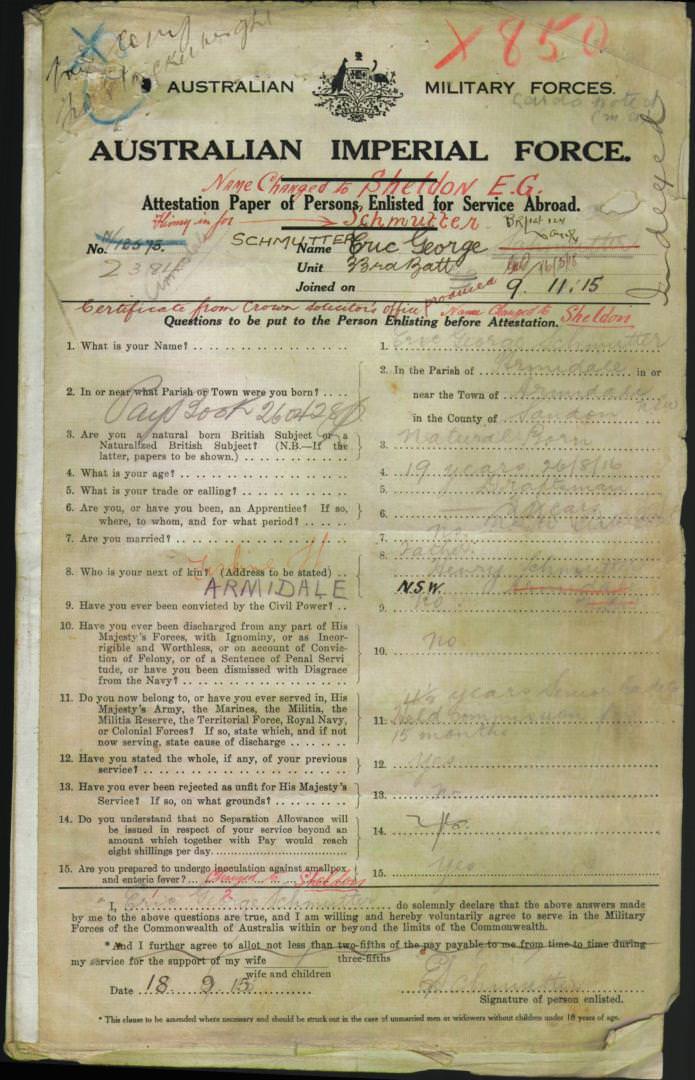 X850
AUSTRALIAN MILITARY FORCES.
Cards noted
AUSTRALIAN IMPERIAL FORCE.
Indexed
Name Changed to Sheldon E.G.
Attestation Paper of Persons Enlisted for Service Abroad.
Schmutter
No. N/12575. SCHMUTTER Name Eric George
Unit 33rd Batt
Joined on 9.11.15
Certificate from Crown Solicitor's office produced Name Changed to Sheldon
Questions to be put to the Person Enlisting before Attestation.
1. What is your Name? 1. Eric George Schmutter
2. In or near what Parish or Town were you born? 2. In the Parish of Armidale in or
near the Town of Armidale
in the County of Sandon NSW
Pay Book
3. Are you a natural born British Subject or a
Naturalized British Subject? (N.B.—If the
latter, papers to be shown.) 3. Natural Born
4. What is your age? 4. 19 years 26/8/16
5. What is your trade or calling? 5. Draftsman
6. Are you, or have you been, an Apprentice? If so,
where, to whom, and for what period? 6. years
7. Are you married? 7. No
8. Who is your next of kin? (Address to be stated) 8. Father
Henry Schmutter
ARMIDALE N.S.W.
9. Have you ever been convicted by the Civil Power? 9. No
10. Have you ever been discharged from any part of His
Majesty's Forces, with Ignominy, or as Incor-
rigible and Worthless, or on account of Convic-
tion of Felony, or of a Sentence of Penal Servi
tude, or have you been dismissed with Disgrace
from the Navy? 10. No.
11. Do you now belong to, or have you ever served in, His
Majesty's Army, the Marines, the Militia, the
Militia Reserve, the Territorial Force, Royal Navy,
or Colonial Forces? If so, state which, and if not
now serving, state cause of discharge 11. 4½ years Senior Cadets
Held Commission
15 months
12. Have you stated the whole, if any, of your previous
service? 12. Yes
13. Have you ever been rejected as unfit for His Majesty's
Service? If so, on what grounds? 13. No
14. Do you understand that no Separation Allowance will
be issued in respect of your service beyond an
amount which together with Pay would reach
eight shillings per day. 14. Yes.
15. Are you prepared to undergo inoculation against smallpox
and enteric fever? 15. Yes
Changed to Sheldon
I, Eric George Schmutter do solemnly declare that the above answers made
by me to the above questions are true, and I am willing and hereby voluntarily agree to serve in the Military
Forces of the Commonwealth of Australia within or beyond the limits of the Commonwealth.
* And I further agree to allot not less than two-fifths of the pay payable to me from time to time during
three-fifths
my service for the support of my wife
wife and children
Date 18 9 15 E G Schmutter
Signature of person enlisted.
* This clause to be amended where necessary and should be struck out in the case of unmarried men or widowers without children under 18 years of age.